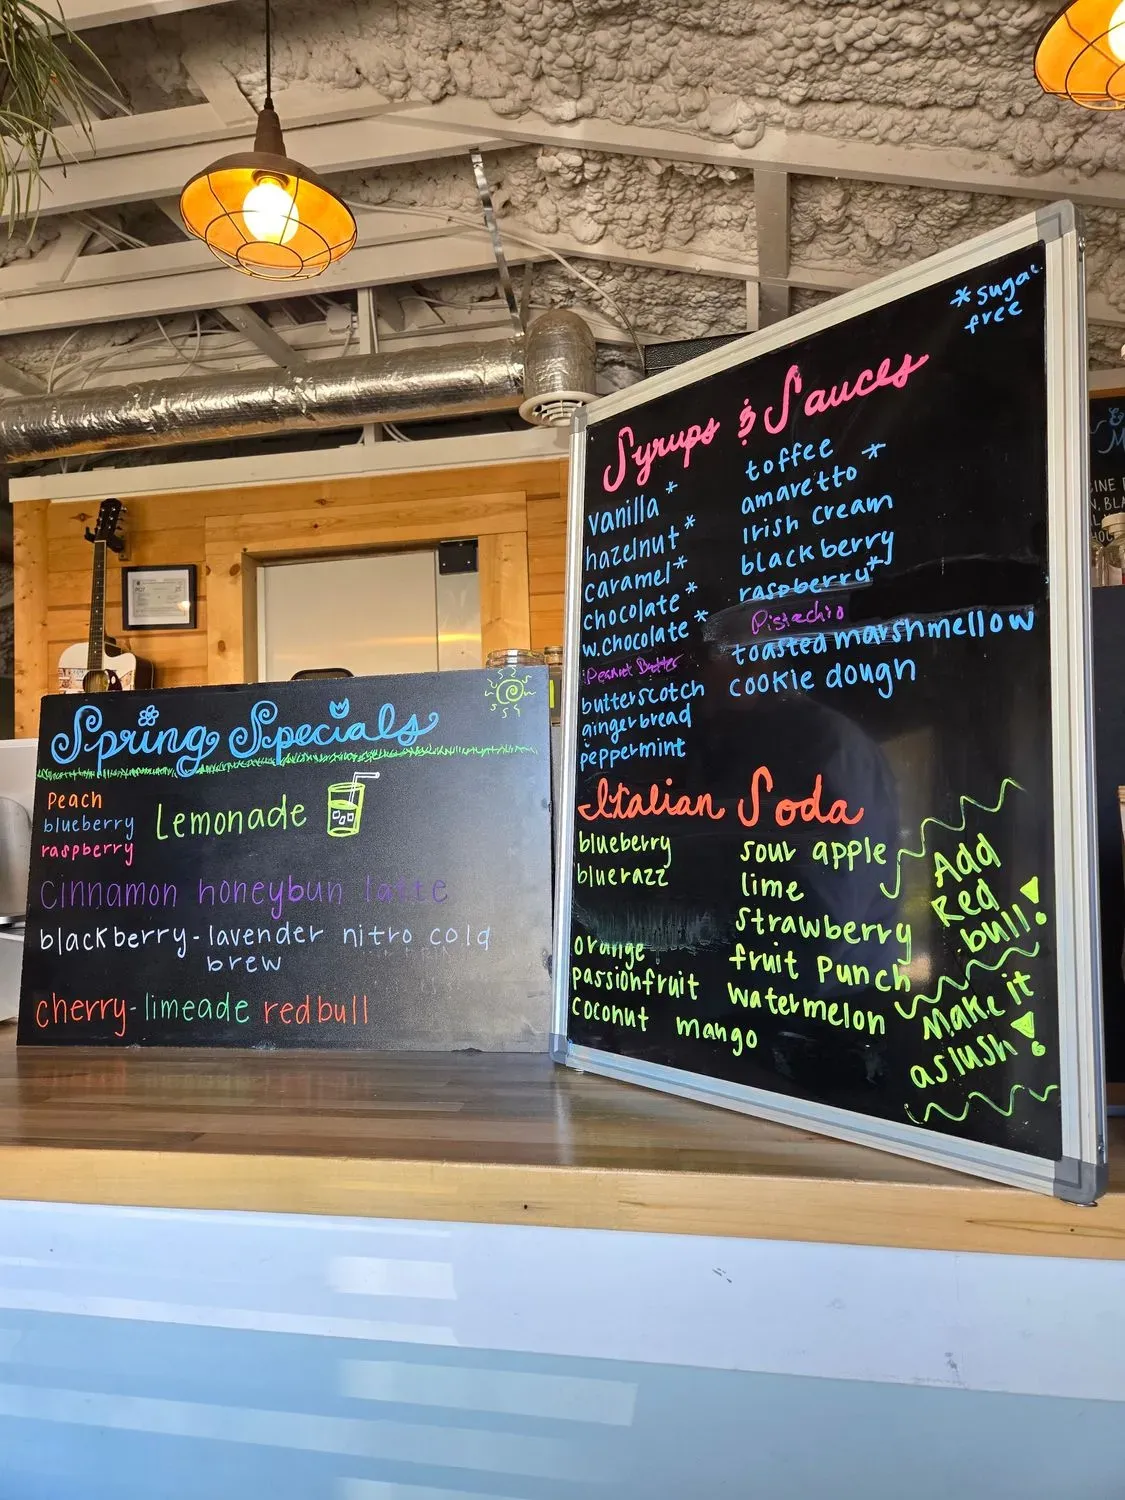 Spring Specials
Peach
blueberry
raspberry
Lemonade
Cinnamon honeybun latte
blackberry-lavender nitro cold
brew
cherry-limeade redbull
*sugar
free
Syrups & Sauces
vanilla*
hazelnut*
caramel*
chocolate*
w.chocolate*
Peanut Butter
butterscotch
gingerbread
peppermint
toffee
amaretto*
Irish cream
blackberry
raspberry*
Pistachio
toasted marshmellow
cookie dough
Italian Soda
blueberry
bluerazz
orange
passionfruit
coconut
mango
sour apple
lime
strawberry
fruit punch
watermelon
Add
Red
bull!
Make it
a slush!